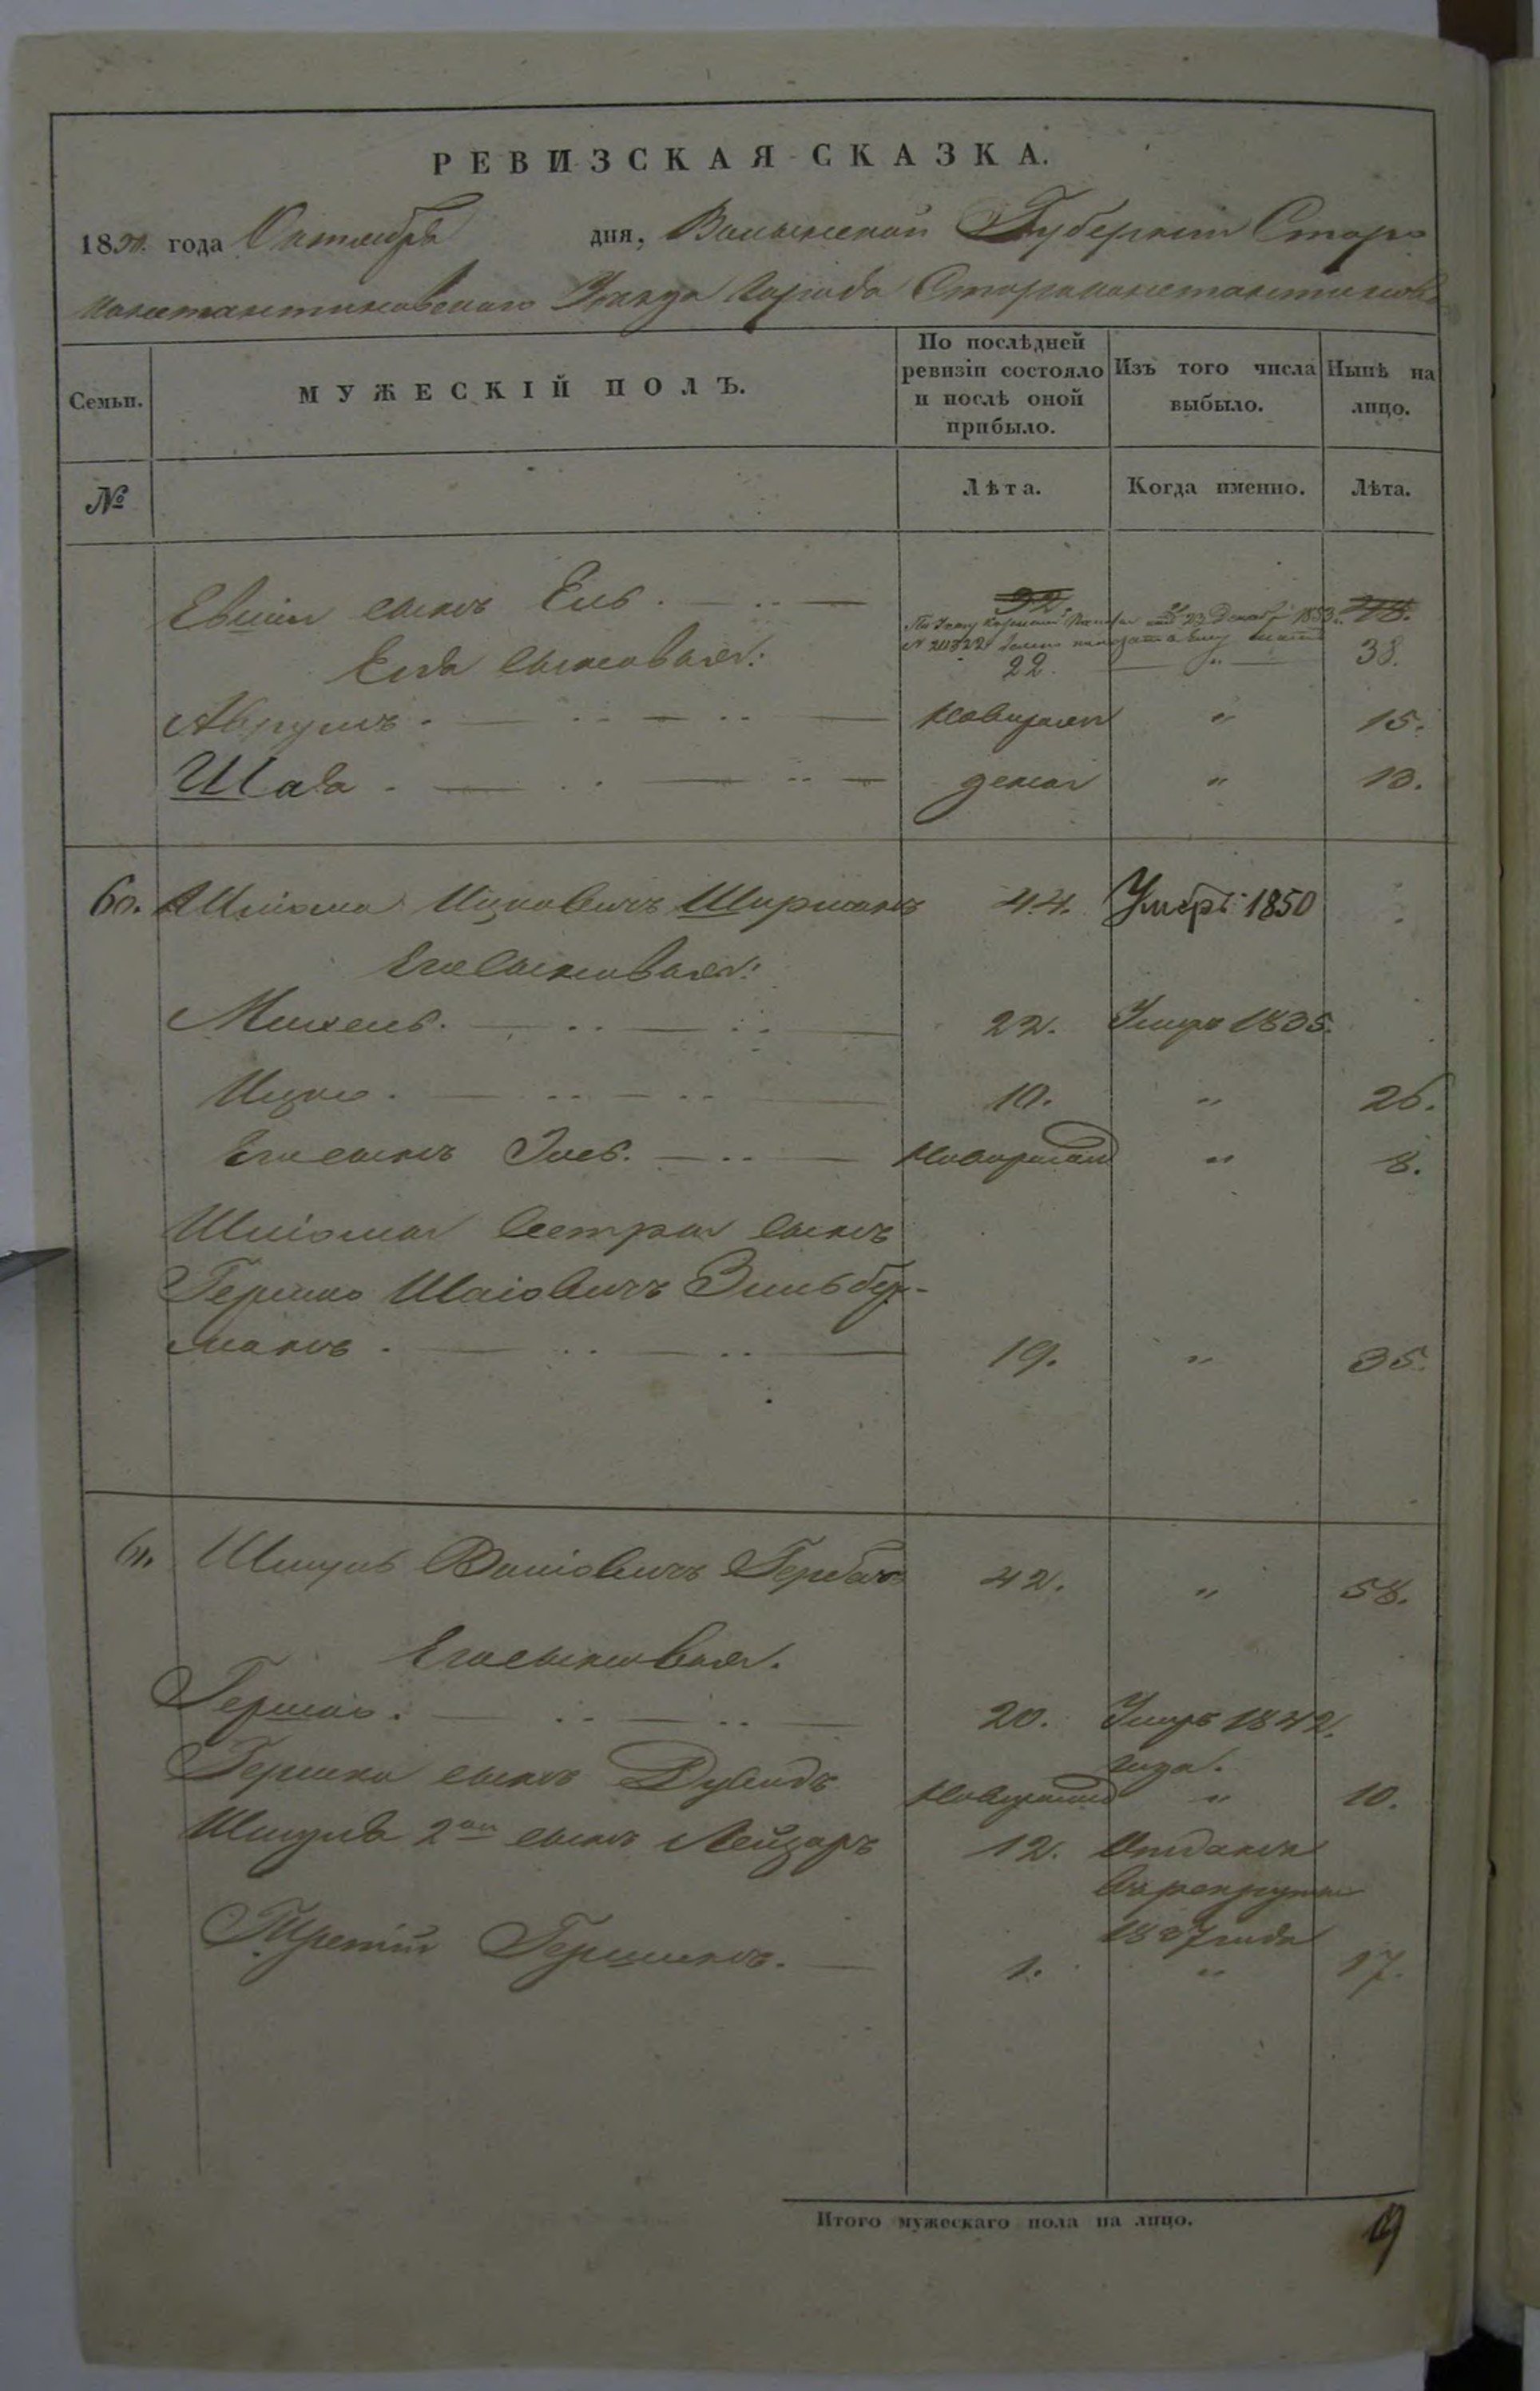 РЕВИЗСКАЯ СКАЗКА.
1850. года Октября дня, Волынской Губернии Старо
константиновского Уезда города Староконстантинова
Семьи.
МУЖЕСКІЙ ПОЛЪ.
По послѣдней ревизіи состояло и послѣ оной прибыло.
Изъ того числа выбыло.
Нынѣ на лицо.
№
Лѣта.
Когда именно.
Лѣта.
сынъ Ель. 22.
По 23 Декабр 1853
№
Еля сыновья: 22. " 38.
Аврумъ. Новорожд " 15.
Шая денъ " 13.
60. Шліома Ицковичъ Ширманъ 44. Умеръ 1850
Его сыновья:
Михель. 22. Умеръ 1835.
Ицко. 10. " 26.
Его сынъ Новорожд " 8.
Шліома сестры сынъ
Гершко Шаіовичъ Зильбер-
манъ. 19. " 35.
61. Шмуль 42. " 58.
Его сыновья.
Гершко. 20. Умеръ 1842.
года.
Гершка сынъ Дувидъ Новорожд " 10.
Шмуля 2ой сынъ Лейзоръ 12. Отданъ
въ рекруты
1837 года
Третій Гершонъ. 1. " 17.
Итого мужескаго пола на лицо. 9